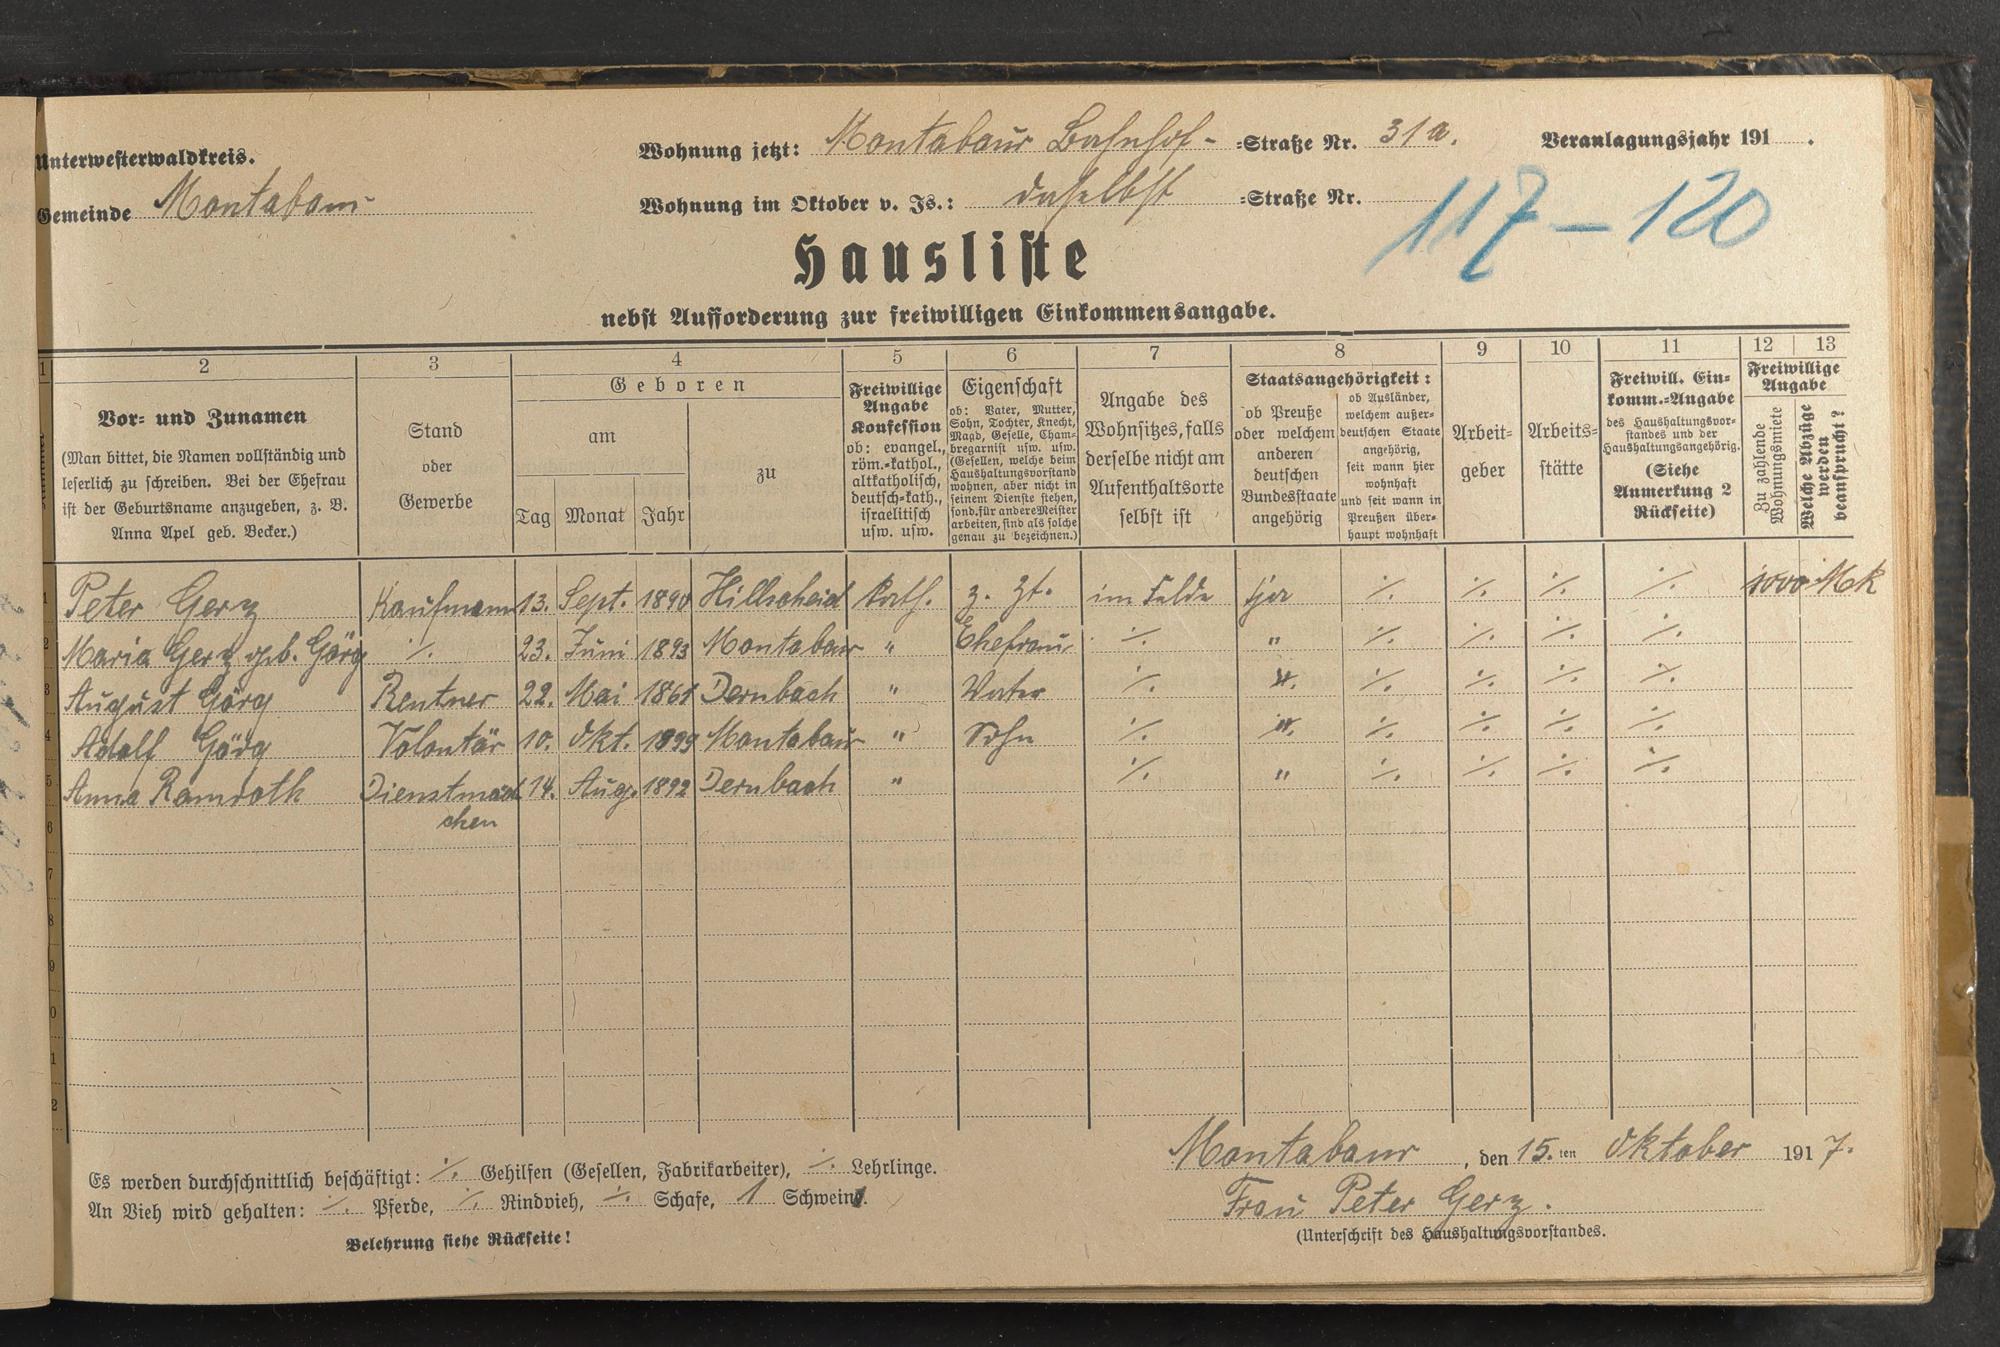 Unterwesterwaldkreis.
Gemeinde Montabaur
Wohnung jetzt: Montabaur Bahnhof- =Straße Nr. 31a.
Veranlagungsjahr 191 .
Wohnung im Oktober v. Js.: daselbst =Straße Nr.
117 – 120
Hausliste
nebst Aufforderung zur freiwilligen Einkommensangabe.
1 2 3 4 5 6 7 8 9 10 11 12 13
Vor- und Zunamen
(Man bittet, die Namen vollständig und
leserlich zu schreiben. Bei der Ehefrau
ist der Geburtsname anzugeben, z. B.
Anna Apel geb. Becker.)
Stand
oder
Gewerbe
Geboren
am
Tag Monat Jahr
zu
Freiwillige
Angabe
Konfession
ob: evangel.,
röm.-kathol.,
altkatholisch,
deutsch-kath.,
israelitisch
usw. usw.
Eigenschaft
ob: Vater, Mutter,
Sohn, Tochter, Knecht,
Magd, Geselle, Cham-
bregarnist usw. usw.
(Gesellen, welche beim
Haushaltungsvorstand
wohnen, aber nicht in
seinem Dienste stehen,
sond. für andere Meister
arbeiten, sind als solche
genau zu bezeichnen.)
Angabe des
Wohnsitzes, falls
derselbe nicht am
Aufenthaltsorte
selbst ist
Staatsangehörigkeit:
ob Preuße
oder welchem
anderen
deutschen
Bundesstaate
angehörig
ob Ausländer,
welchem außer-
deutschen Staate
angehörig,
seit wann hier
wohnhaft
und seit wann in
Preußen über-
haupt wohnhaft
Arbeit-
geber
Arbeits-
stätte
Freiwill. Ein-
komm.-Angabe
des Haushaltungsvor-
standes und der
Haushaltungsangehörig.
(Siehe
Anmerkung 2
Rückseite)
Freiwillige
Angabe
Zu zahlende
Wohnungsmiete
Welche Abzüge
werden
beansprucht?
1 Peter Gerz Kaufmann 13. Sept. 1890 Hillscheid Kath. z. Zt. im Felde ja ⁒ ⁒ ⁒ ⁒ 1000 Mk
2 Maria Gerz geb. Görg ⁒ 23. Juni 1893 Montabaur " Ehefrau ⁒ " ⁒ ⁒ ⁒ ⁒
3 August Görg Rentner 22. Mai 1861 Dernbach " Vater ⁒ " ⁒ ⁒ ⁒ ⁒
4 Adolf Görg Volontär 10. Okt. 1899 Montabaur " Sohn ⁒ " ⁒ ⁒ ⁒ ⁒
5 Anna Ramroth Dienstmäd 14. Aug. 1892 Dernbach " ⁒ " ⁒ ⁒ ⁒ ⁒
6 chen
7
8
9
0
1
2
Es werden durchschnittlich beschäftigt: ⁒ Gehilfen (Gesellen, Fabrikarbeiter), ⁒ Lehrlinge.
An Vieh wird gehalten: ⁒ Pferde, ⁒ Rindvieh, ⁒ Schafe, 1 Schwein.
Belehrung siehe Rückseite!
Montabaur, den 15.ten Oktober 1917.
Frau Peter Gerz.
(Unterschrift des Haushaltungsvorstandes.